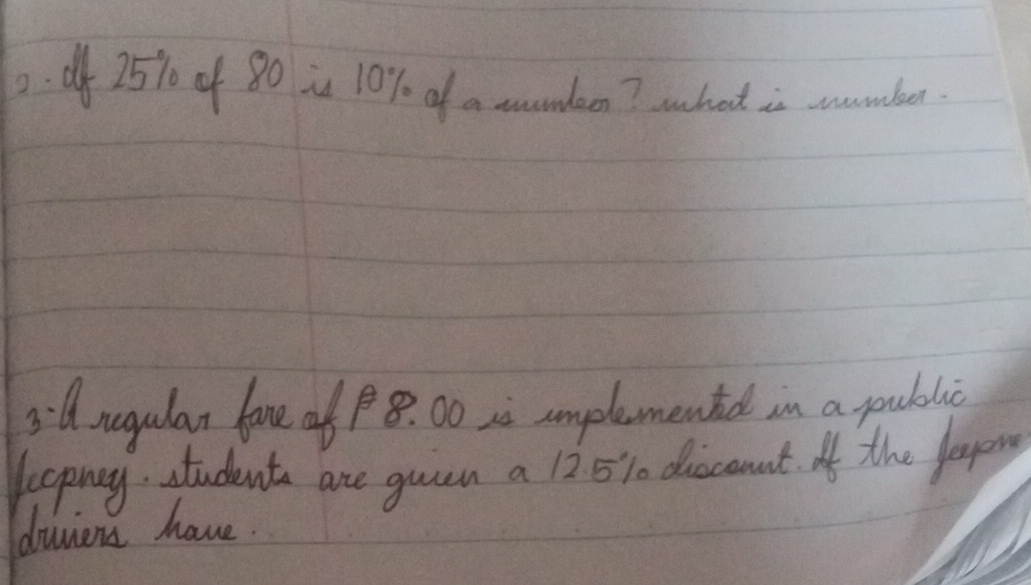 2. If 25% of 80 is 10% of a number? what is number.
3. A regular fare of ₱ 8.00 is implemented in a public
Jeepney. students are given a 12.5% discount. If the
drivers have..